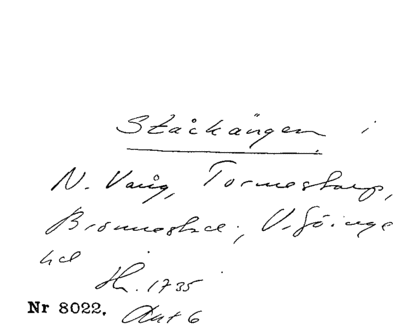 Stackängen i
N. Vång, Tormestorp,
Brönnestad, V. Göinge
hd
Hr. 1735
Nr 8022. Akt 6